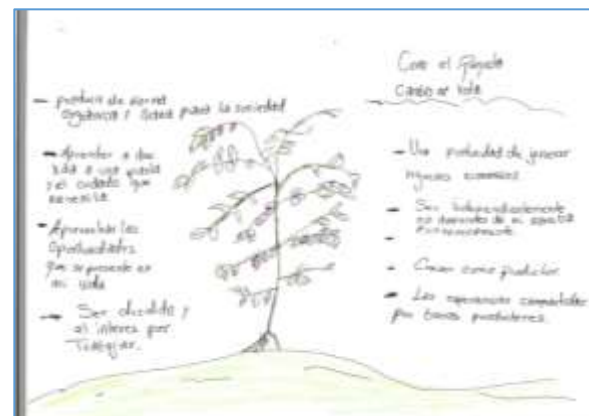 - producir de forma
organica y sana para la sociedad
- Aprender a dar
vida a una planta
y el cuidado que
necesita
- Aprovechar las
Oportunidades
que se presente en
mi vida
- Ser decidida y
el interes por
Trabajar.
Como el
Cambio mi vida
- Una de generar
ingresos economicos
- Ser Independientemente
no depender de mi
economicamente
-
- Crecer como productor
- Las experiencias compartidas
por otros productores.